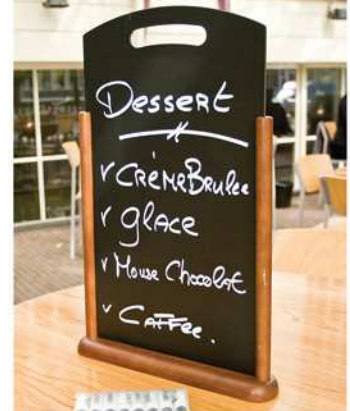 Dessert
✓ CRÈMEBRulee
✓ glace
✓ Mouse Chocolat
✓ Caffee.